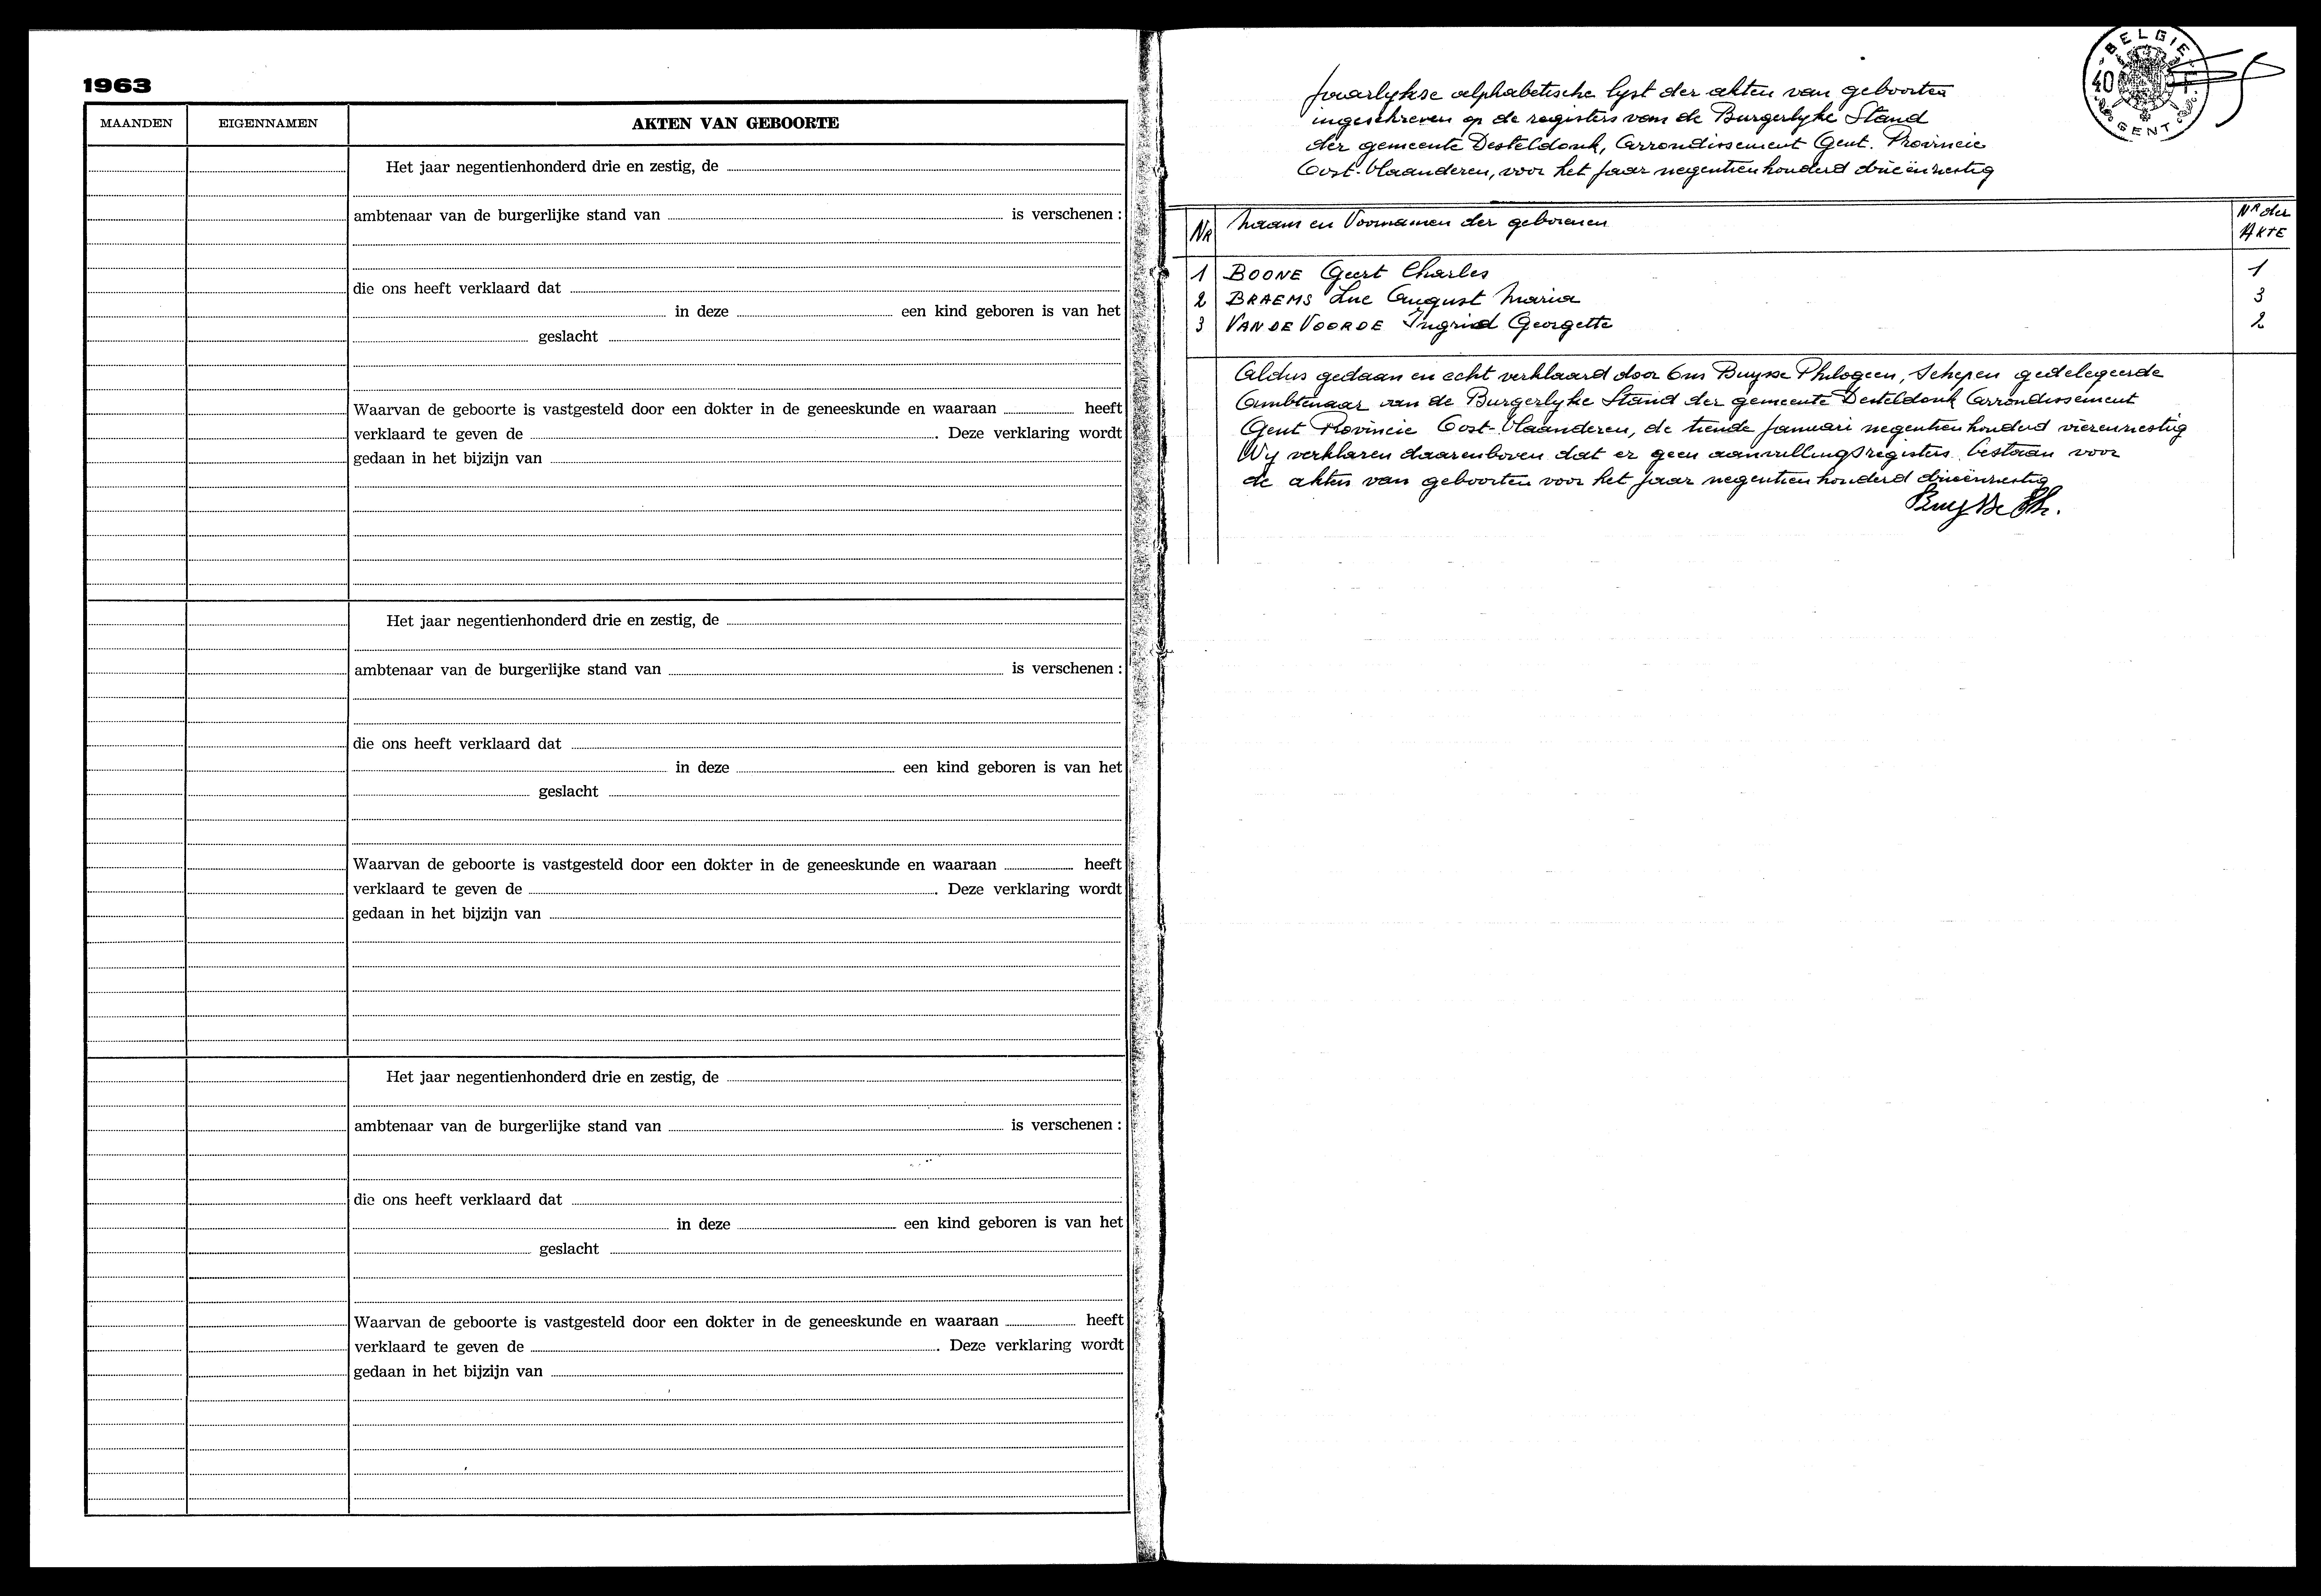 1963
MAANDEN EIGENNAMEN AKTEN VAN GEBOORTE
Het jaar negentienhonderd drie en zestig, de
ambtenaar van de burgerlijke stand van is verschenen :
die ons heeft verklaard dat
in deze een kind geboren is van het
geslacht
Waarvan de geboorte is vastgesteld door een dokter in de geneeskunde en waaraan heeft
verklaard te geven de . Deze verklaring wordt
gedaan in het bijzijn van
Het jaar negentienhonderd drie en zestig, de
ambtenaar van de burgerlijke stand van is verschenen :
die ons heeft verklaard dat
in deze een kind geboren is van het
geslacht
Waarvan de geboorte is vastgesteld door een dokter in de geneeskunde en waaraan heeft
verklaard te geven de . Deze verklaring wordt
gedaan in het bijzijn van
Het jaar negentienhonderd drie en zestig, de
ambtenaar van de burgerlijke stand van is verschenen :
die ons heeft verklaard dat
in deze een kind geboren is van het
geslacht
Waarvan de geboorte is vastgesteld door een dokter in de geneeskunde en waaraan heeft
verklaard te geven de . Deze verklaring wordt
gedaan in het bijzijn van
BELGIE
40 F.
GENT
Jaarlykse alphabetische lyst der akten van geboorten
ingeschreven op de registers van de Burgerlyke Stand
der gemeente Desteldonk, Arrondissement Gent. Provincie
Oost-Vlaanderen, voor het jaar negentienhonderd drieënzestig
NR Naam en Voornamen der geborenen NR der AKTE
1 BOONE Geert Charles 1
2 BRAEMS Luc August Maria 3
3 VAN DE VOORDE Ingrid Georgette 2
Aldus gedaan en echt verklaard door Ons Buysse Philogeen, Schepen gedelegeerde
Ambtenaar van de Burgerlyke Stand der gemeente Desteldonk Arrondissement
Gent Provincie Oost-Vlaanderen, de tiende Januari negentienhonderd vierenzestig
Wy verklaren daarenboven dat er geen aanvullingsregisters bestaan voor
de akten van geboorten voor het jaar negentienhonderd drieënzestig
Buysse Ph.